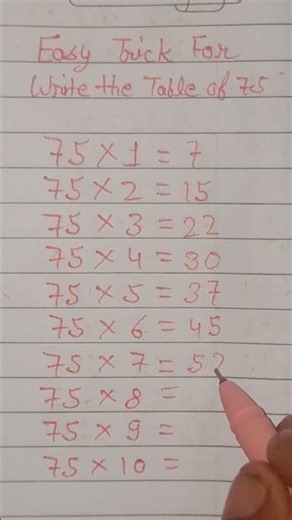 Easy Trick For
Write the Table of 75
75 × 1 = 7
75 × 2 = 15
75 × 3 = 22
75 × 4 = 30
75 × 5 = 37
75 × 6 = 45
75 × 7 = 52
75 × 8 =
75 × 9 =
75 × 10 =